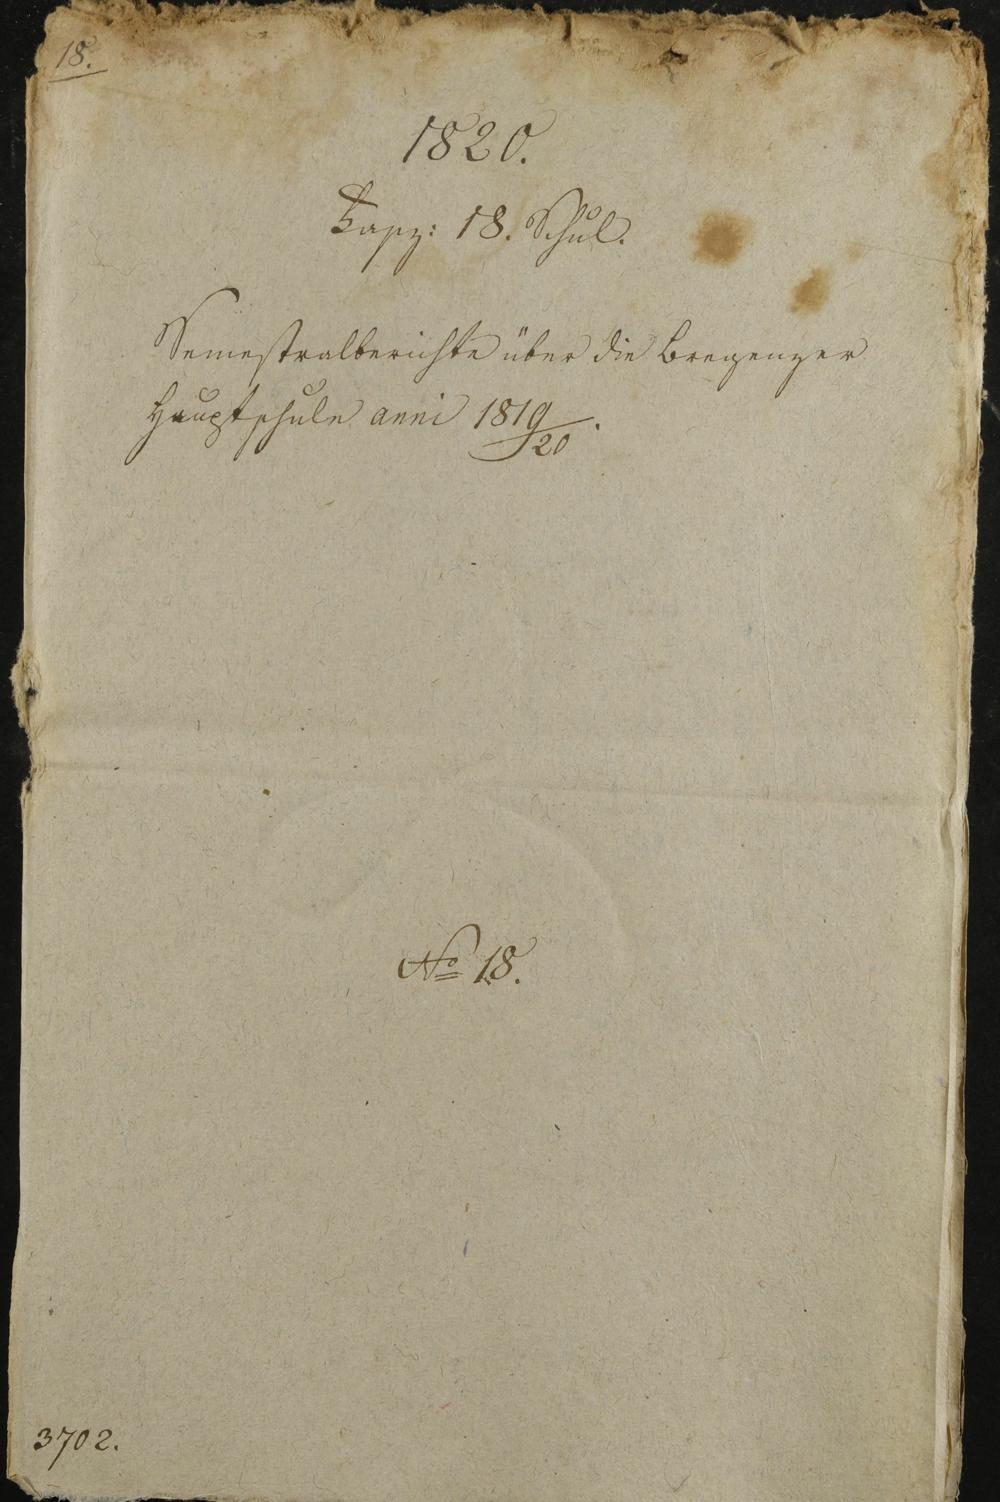 18.
1820.
Fasz: 18. Schul.
Semestralberichte über die Bregenzer
Hauptschule anni 1819/20.
No 18.
3702.